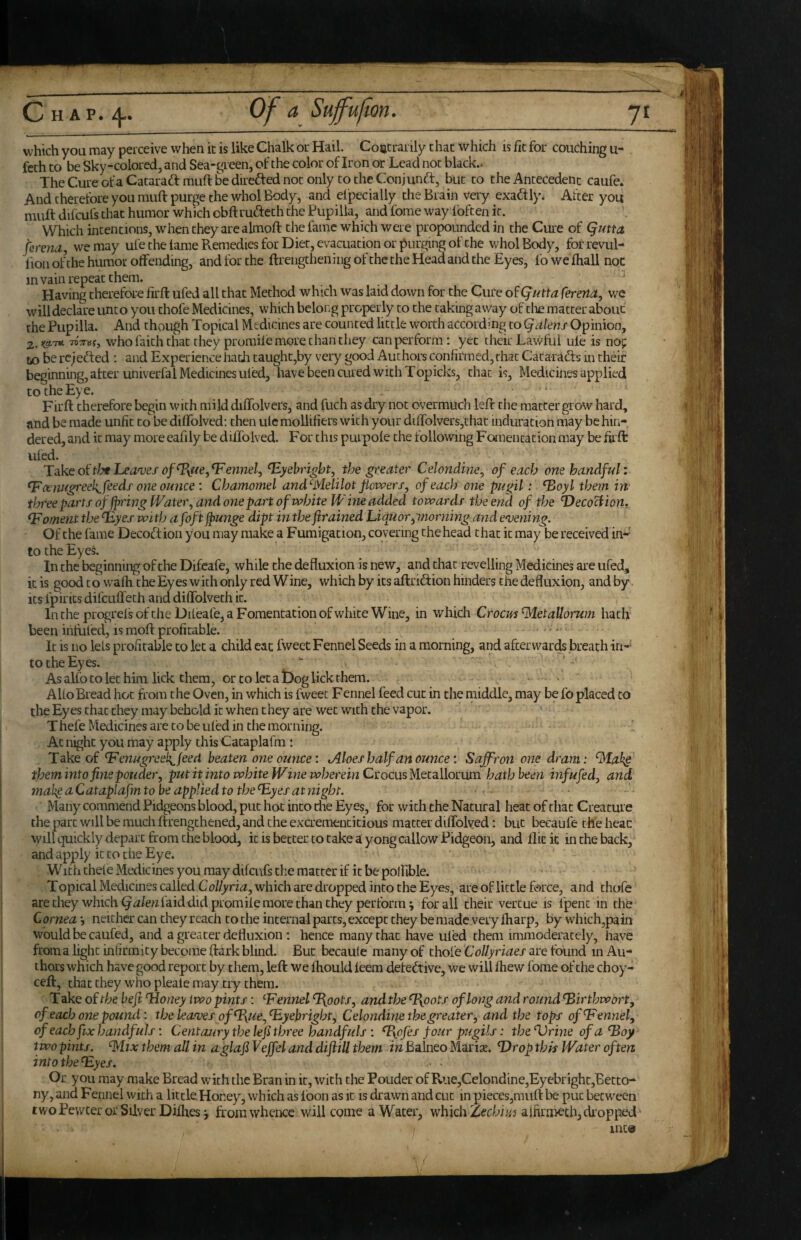 CHAP. 4. Of a Suffusion. 71
which you may perceive when it is like Chalk or Hail. Contrarily that which is fit for couching u-
seth to be Sky-colored, and Sea-green, of the color of Iron or Lead not black.
The Cure of a Cataract must be directed not only to the Conjunct, but to the Antecedent cause.
And therefore you must purge the whol Body, and especially the Brain very exactly. After you
must discuss that humor which obstructeth the Pupilla, and some way soften it.
Which intentions, when they are almost the same which were propounded in the Cure of Gutta
serena, we may use the same Remedies for Diet, evacuation or purging of the whol Body, for revul-
sion of the humor offending, and for the strengthening of the the Head and the Eyes, so we shall not
in vain repeat them.
Having therefore first used all that Method which was laid down for the Cure of Gutta serena, we
will declare unto you those Medicines, which belong properly to the taking away of the matter about
the Pupilla. And though Topical Medicines are counted little worth according to Galens Opinion,
2. κατα τόπους, who saith that they promise more than they can perform: yet their Lawful use is not
to be rejected: and Experience hath taught, by very good Authors confirmed, that Cataracts in their
beginning, after universal Medicines used, have been cured with Topicks, that is, Medicines applied
to the Eye.
First therefore begin with mild dissolvers, and such as dry not overmuch lest the matter grow hard,
and be made unfit to be dissolved: then use mollifiers with your dissolvers, that induration may be hin-
dered, and it may more easily be dissolved. For this purpose the following Fomentation may be first
used.
Take of the Leaves of Rue, Fennel, Eyebright, the greater Celondine, of each one handful:
Fœnugreek seeds one ounce: Chamomel and Melilot flowers, of each one pugil: Boyl them in
three parts of spring Water, and one part of white Wine added towards the end of the Decoction.
Foment the Eyes with a soft spunge dipt in the strained Liquor, morning and evening.
Of the same Decoction you may make a Fumigation, covering the head that it may be received in-
to the Eyes.
In the beginning of the Disease, while the defluxion is new, and that revelling Medicines are used,
it is good to wash the Eyes with only red Wine, which by its astriction hinders the defluxion, and by
its spirits discusseth and dissolveth it.
In the progress of the Disease, a Fomentation of white Wine, in which Crocus Metallorum hath
been infused, is most profitable.
It is no less profitable to let a child eat sweet Fennel Seeds in a morning, and afterwards breath in-
to the Eyes.
As also to let him lick them, or to let a Dog lick them.
Also Bread hot from the Oven, in which is sweet Fennel seed cut in the middle, may be so placed to
the Eyes that they may behold it when they are wet with the vapor.
These Medicines are to be used in the morning.
At night you may apply this Cataplasm:
Take of Fenugreek seed beaten one ounce: Aloes half an ounce: Saffron one dram: Make
them into fine pouder, put it into white Wine wherein Crocus Metallorum hath been infused, and
make a Cataplasm to be applied to the Eyes at night.
Many commend Pidgeons blood, put hot into the Eyes, for with the Natural heat of that Creature
the part will be much strengthened, and the excrementitious matter dissolved: but because the heat
will quickly depart from the blood, it is better to take a yong callow Pidgeon, and slit it in the back,
and apply it to the Eye.
With these Medicines you may discuss the matter if it be possible.
Topical Medicines called Collyria, which are dropped into the Eyes, are of little force, and those
are they which Galen said did promise more than they perform; for all their vertue is spent in the
Cornea; neither can they reach to the internal parts, except they be made very sharp, by which, pain
would be caused, and a greater defluxion: hence many that have used them immoderately, have
from a light infirmity become stark blind. But because many of those Collyriaes are found in Au-
thors which have good report by them, lest we should seem defective, we will shew some of the choy-
cest, that they who please may try them.
Take of the best Honey two pints: Fennel Roots, and the Roots of long and round Birthwort,
of each one pound: the leaves of Rue, Eyebright, Celondine the greater, and the tops of Fennel,
of each six handfuls: Centaury the less three handfuls: Roses four pugils: the Urine of a Boy
two pints. Mix them all in a glass Vessel and distill them in Balneo Mariæ. Drop this Water often
into the Eyes.
Or you may make Bread with the Bran in it, with the Pouder of Rue, Celondine, Eyebright, Betto-
ny, and Fennel with a little Honey, which as soon as it is drawn and cut in pieces, must be put between
two Pewter or Silver Dishes; from whence will come a Water, which Zechius affirmeth, dropped
into